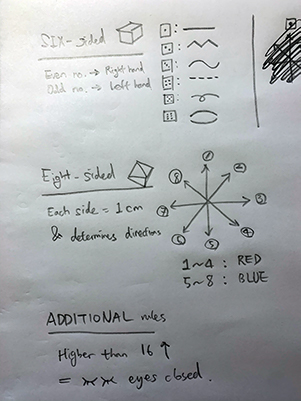 SIX-sided
Even no. → Right hand
Odd no. → Left hand
Eight-sided
Each side = 1 cm
& determines directions
1
2
3
4
5
6
7
8
1~4 : RED
5~8 : BLUE
ADDITIONAL rules
Higher than 16 ↑
= eyes closed.